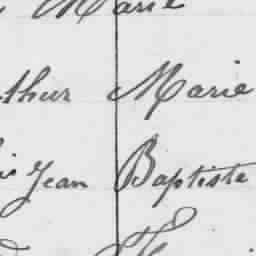 Marie
thur Marie
Jean Baptiste